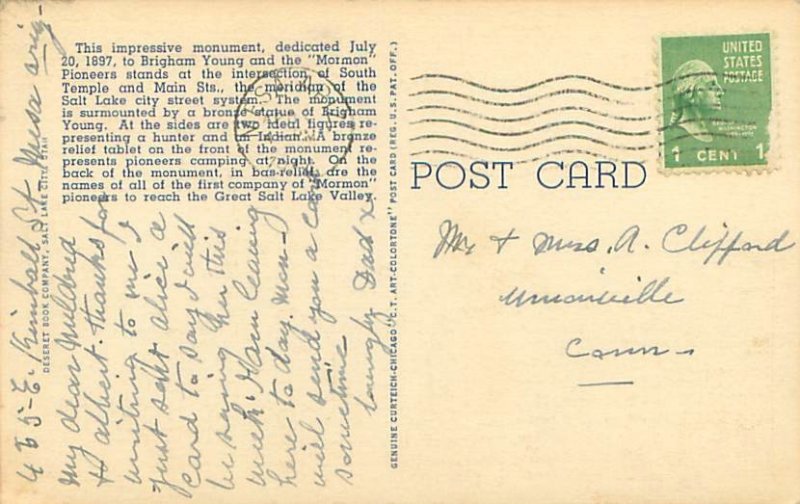 This impressive monument, dedicated July
20, 1897, to Brigham Young and the "Mormon"
Pioneers stands at the intersection of South
Temple and Main Sts., the meridian of the
Salt Lake city street system. The monument
is surmounted by a bronze statue of Brigham
Young. At the sides are two ideal figures re-
presenting a hunter and an Indian. A bronze
relief tablet on the front of the monument re-
presents pioneers camping at night. On the
back of the monument, in bas-relief, are the
names of all of the first company of "Mormon"
pioneers to reach the Great Salt Lake Valley.
DESERET BOOK COMPANY, SALT LAKE CITY, UTAH
455-E. Kimball St Mesa Ariz-
My dear Mildred
& Albert. thanks for
writing to me I
Just sent Alice a
card to say I will
be seeing her this
week. I am leaving
here to day. Mon-
will send you a card
sometime
Lovingly Dad x
GENUINE CURTEICH-CHICAGO "C.T. ART-COLORTONE" POST CARD (REG. U.S. PAT. OFF.)
UNITED
STATES
POSTAGE
WASHINGTON
1 CENT 1
POST CARD
Mr & Mrs. A. Clifford
Unionville
Conn-